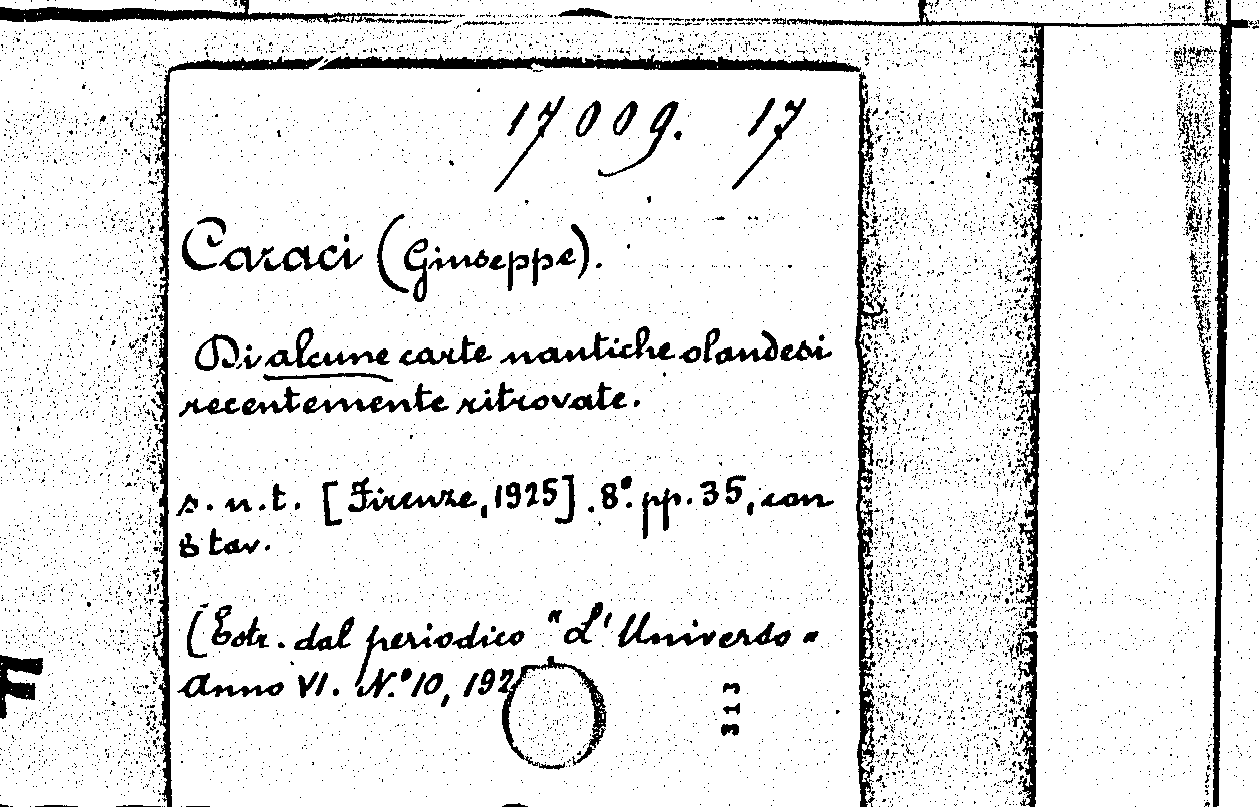 17009. 17
Caraci (Giuseppe).
Di alcune carte nautiche olandesi
recentemente ritrovate.
s. n. t. [Firenze, 1925]. 8º. pp. 35, con
8 tav.
(Estr. dal periodico "L'Universo"
Anno VI. N.º 10, 192
313
F